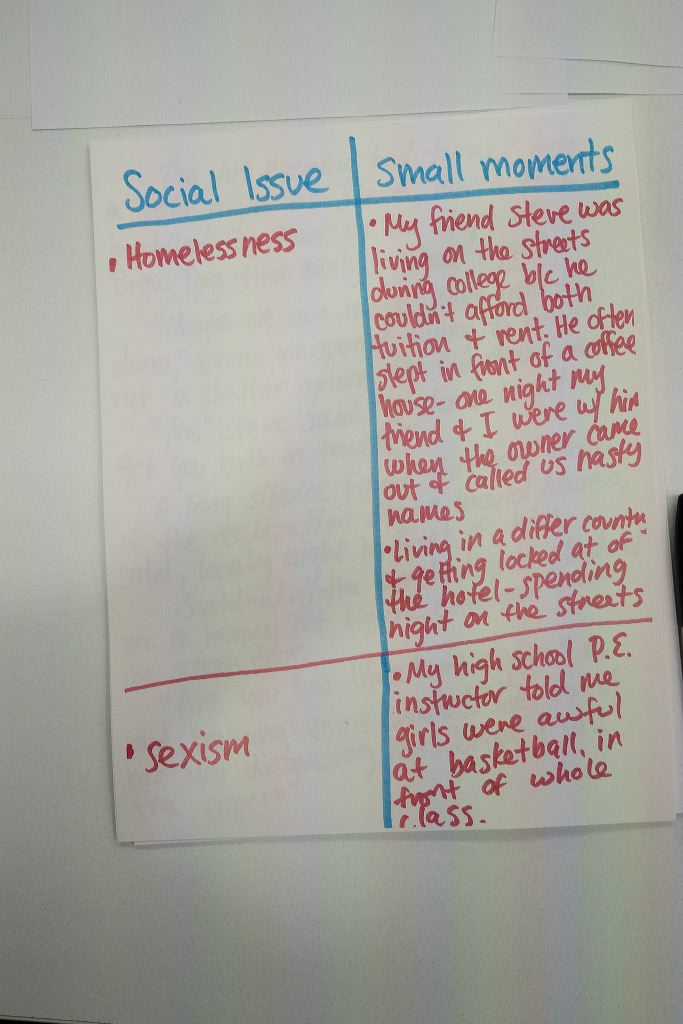 Social Issue
small moments
• Homelessness
• My friend Steve was
living on the streets
during college b/c he
couldn't afford both
tuition & rent. He often
slept in front of a coffee
house - one night my
friend & I were w/ him
when the owner came
out & called us nasty
names
• Living in a differ country
& getting locked at of
the hotel - spending
night on the streets
• sexism
• My high school P.E.
instructor told me
girls were awful
at basketball, in
front of whole
class.